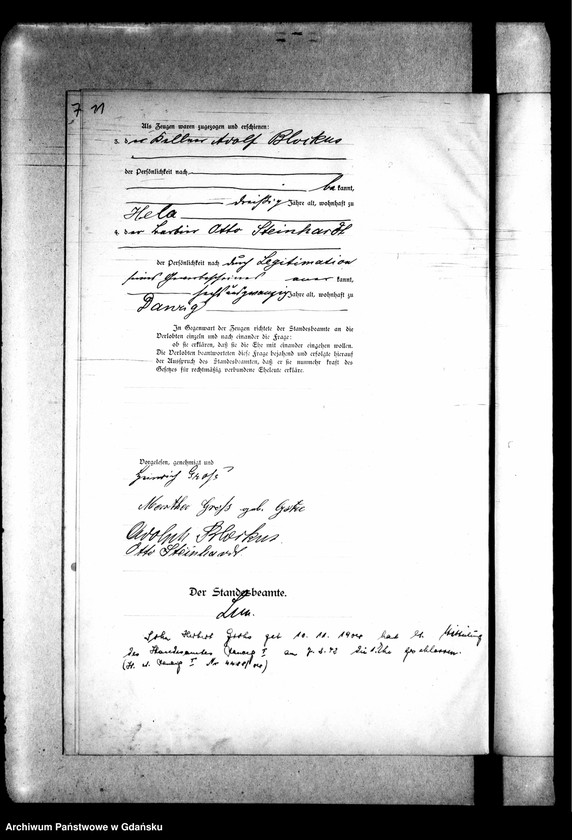 7 21
Als Zeugen waren zugezogen und erschienen:
3. der Kellner Adolf Blockus
der Persönlichkeit nach
be kannt,
dreißig Jahre alt, wohnhaft zu
Hela
4. der Otto Steinhardt
der Persönlichkeit nach durch Legitimation
seines Gewerbescheines aner kannt,
sechsundzwanzig Jahre alt, wohnhaft zu
Danzig
In Gegenwart der Zeugen richtete der Standesbeamte an die
Verlobten einzeln und nach einander die Frage:
ob sie erklären, daß sie die Ehe mit einander eingehen wollen.
Die Verlobten beantworteten diese Frage bejahend und erfolgte hierauf
der Ausspruch des Standesbeamten, daß er sie nunmehr kraft des
Gesetzes für rechtmäßig verbundene Eheleute erkläre.
Vorgelesen, genehmigt und
Heinrich Groß
Marthe Groß geb.
Adolph Blockus
Otto Steinhardt
Der Standesbeamte.
Sohn Herbert geb. 10. 11. hat lt. Mitteilung
des Standesamtes Danzig I am die Ehe geschlossen.
(St. A. Danzig I Nr
Archiwum Państwowe w Gdańsku